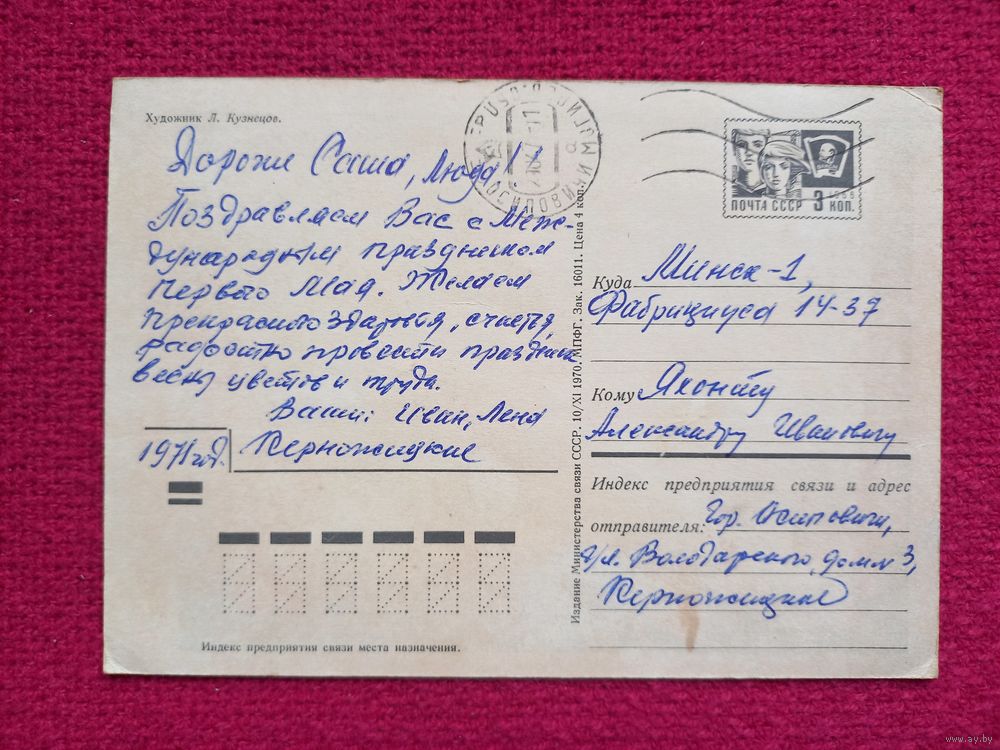 Художник Л. Кузнецов.
Дорожи Саша, Люда!
Поздравляем Вас с Меж-
дународным праздником
Первого Мая. Желаем
прекрасного здоровья, счастья,
радостно провести праздник
весны цветов и труда.
Ваши: Иван, Лена
Керножицкие
1971 год.
ПОЧТА СССР 3 КОП.
Куда Минск-1,
Фабрициуса 14-37
Кому Яхонту
Александру Ивановичу
Индекс предприятия связи и адрес
отправителя: Гор. Осиповичи,
ул. Володарского, дом № 3,
Керножицкие
Издание Министерства связи СССР. 10/XI 1970. МПФГ. Зак. 16011. Цена 4 коп.
Индекс предприятия связи места назначения.
www.ay.by